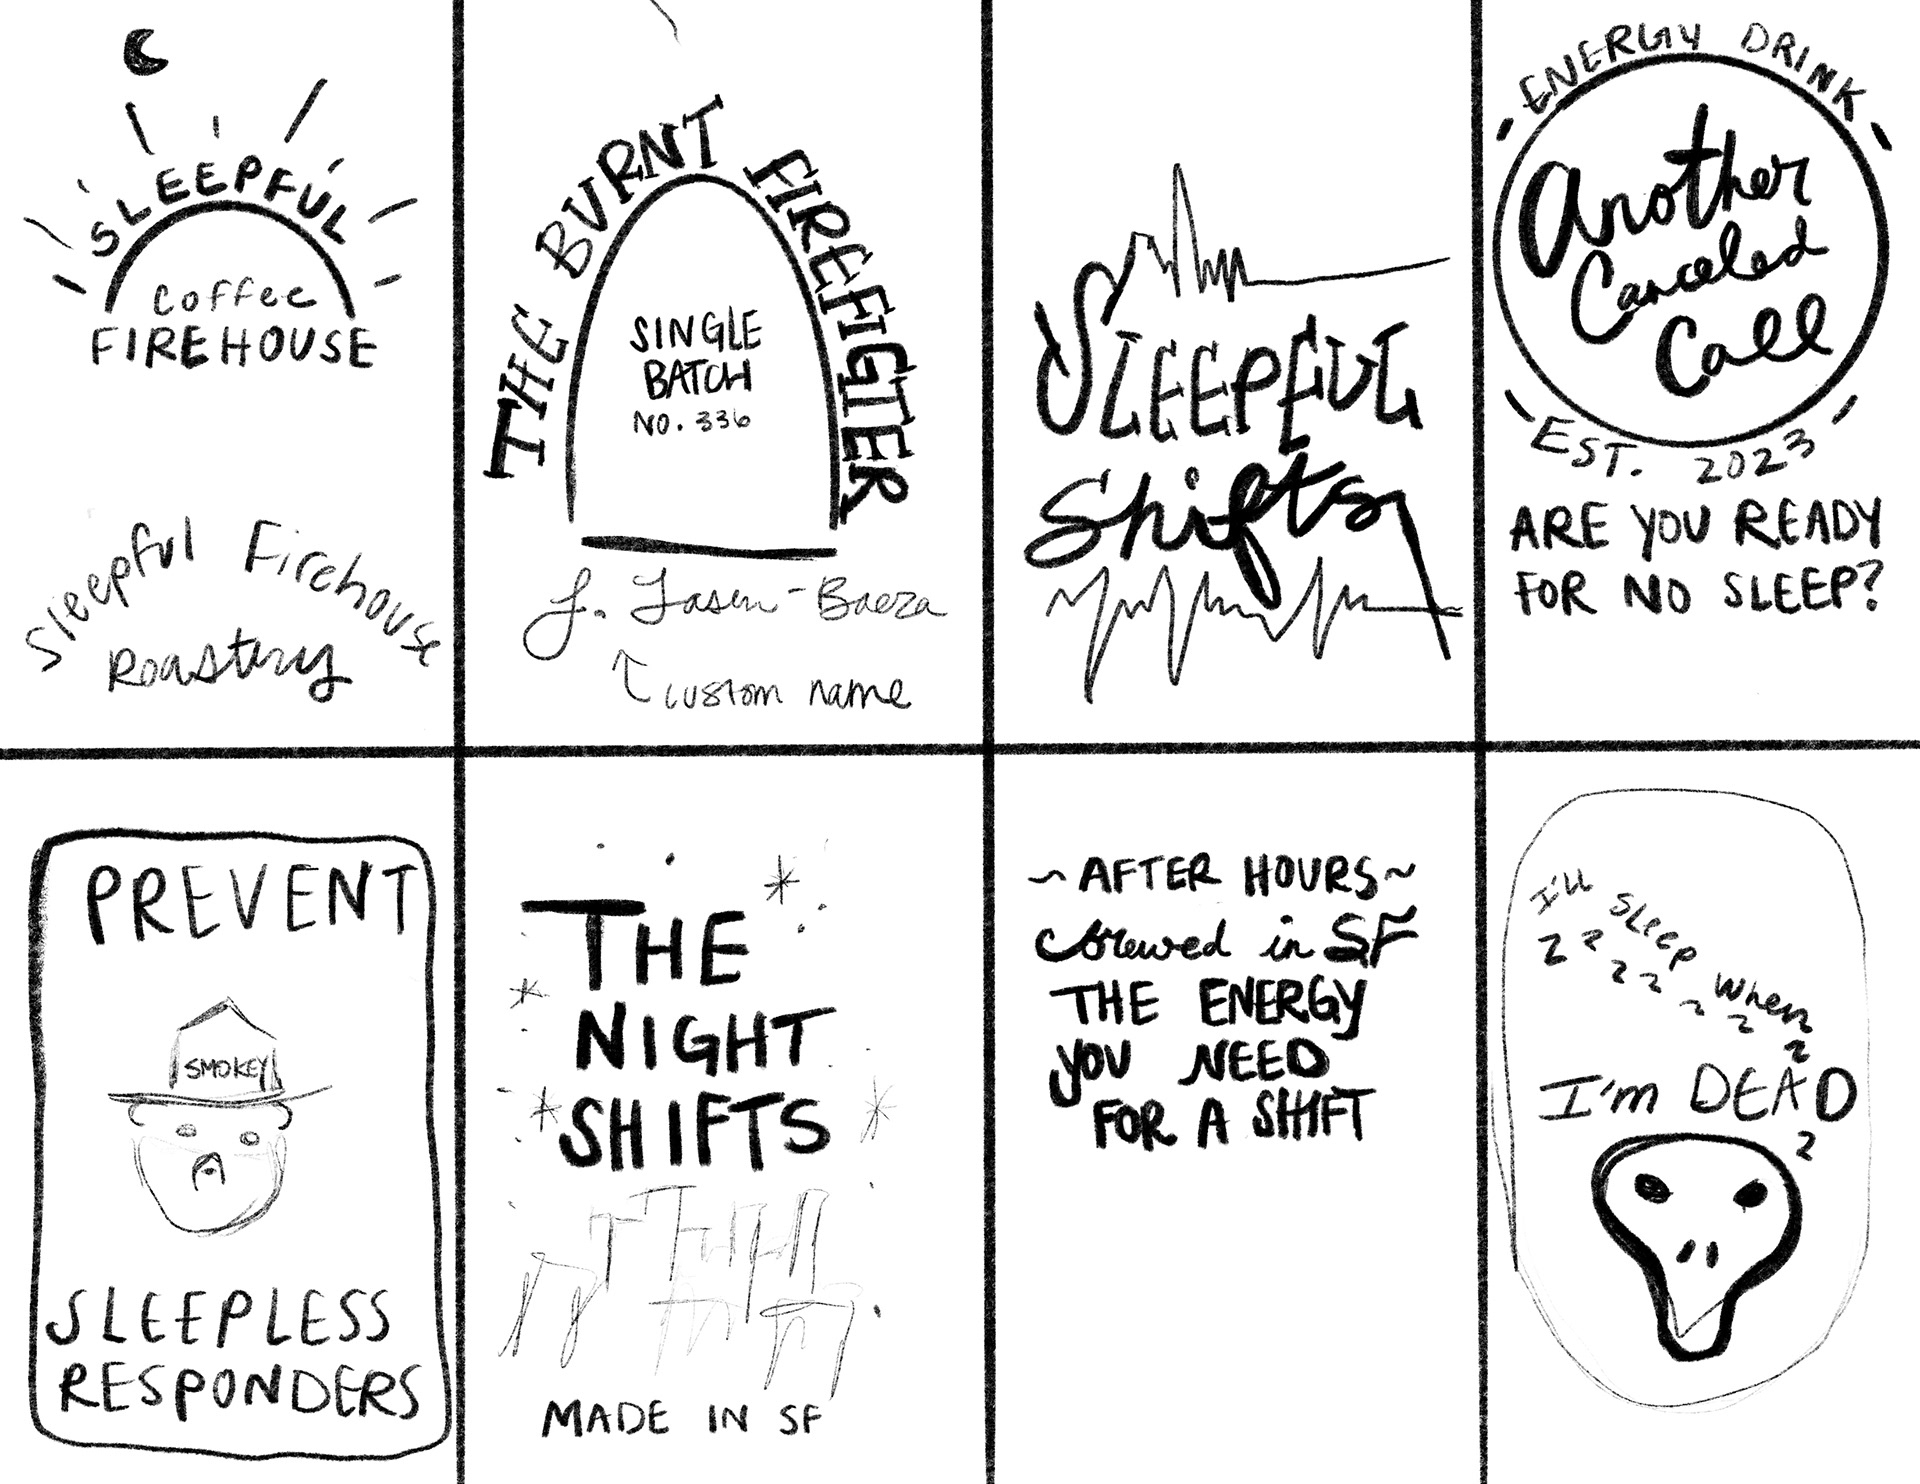 SLEEPFUL
coffee
FIREHOUSE
Sleepful Firehouse
Roastery
THE BURNT FIREFIGTER
SINGLE
BATCH
NO. 336
J. Jasen-Baeza
custom name
SLEEPFUL
Shifts
ENERGY DRINK
Another
Canceled
Call
EST. 2023
ARE YOU READY
FOR NO SLEEP?
PREVENT
SMOKEY
SLEEPLESS
RESPONDERS
THE
NIGHT
SHIFTS
MADE IN SF
~AFTER HOURS~
brewed in SF
THE ENERGY
YOU NEED
FOR A SHIFT
I'll sleep when
z z z z z z z
I'm DEAD
z